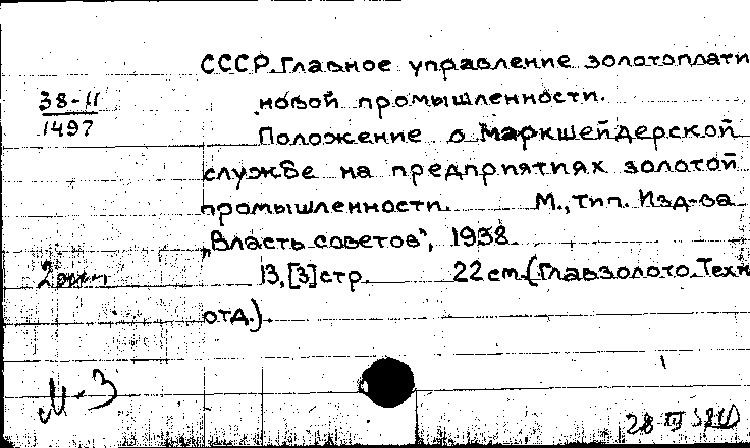 СССР. Главное управление золотоплати
новой промышленности.
38-11
1497
Положение о маркшейдерской
службе на предприятиях золотой
промышленности. М., тип. Изд-ва
„Власть советов", 1938.
13,[3]стр. 22 см. (Главзолото. Техн
2
отд.).
М-3
28